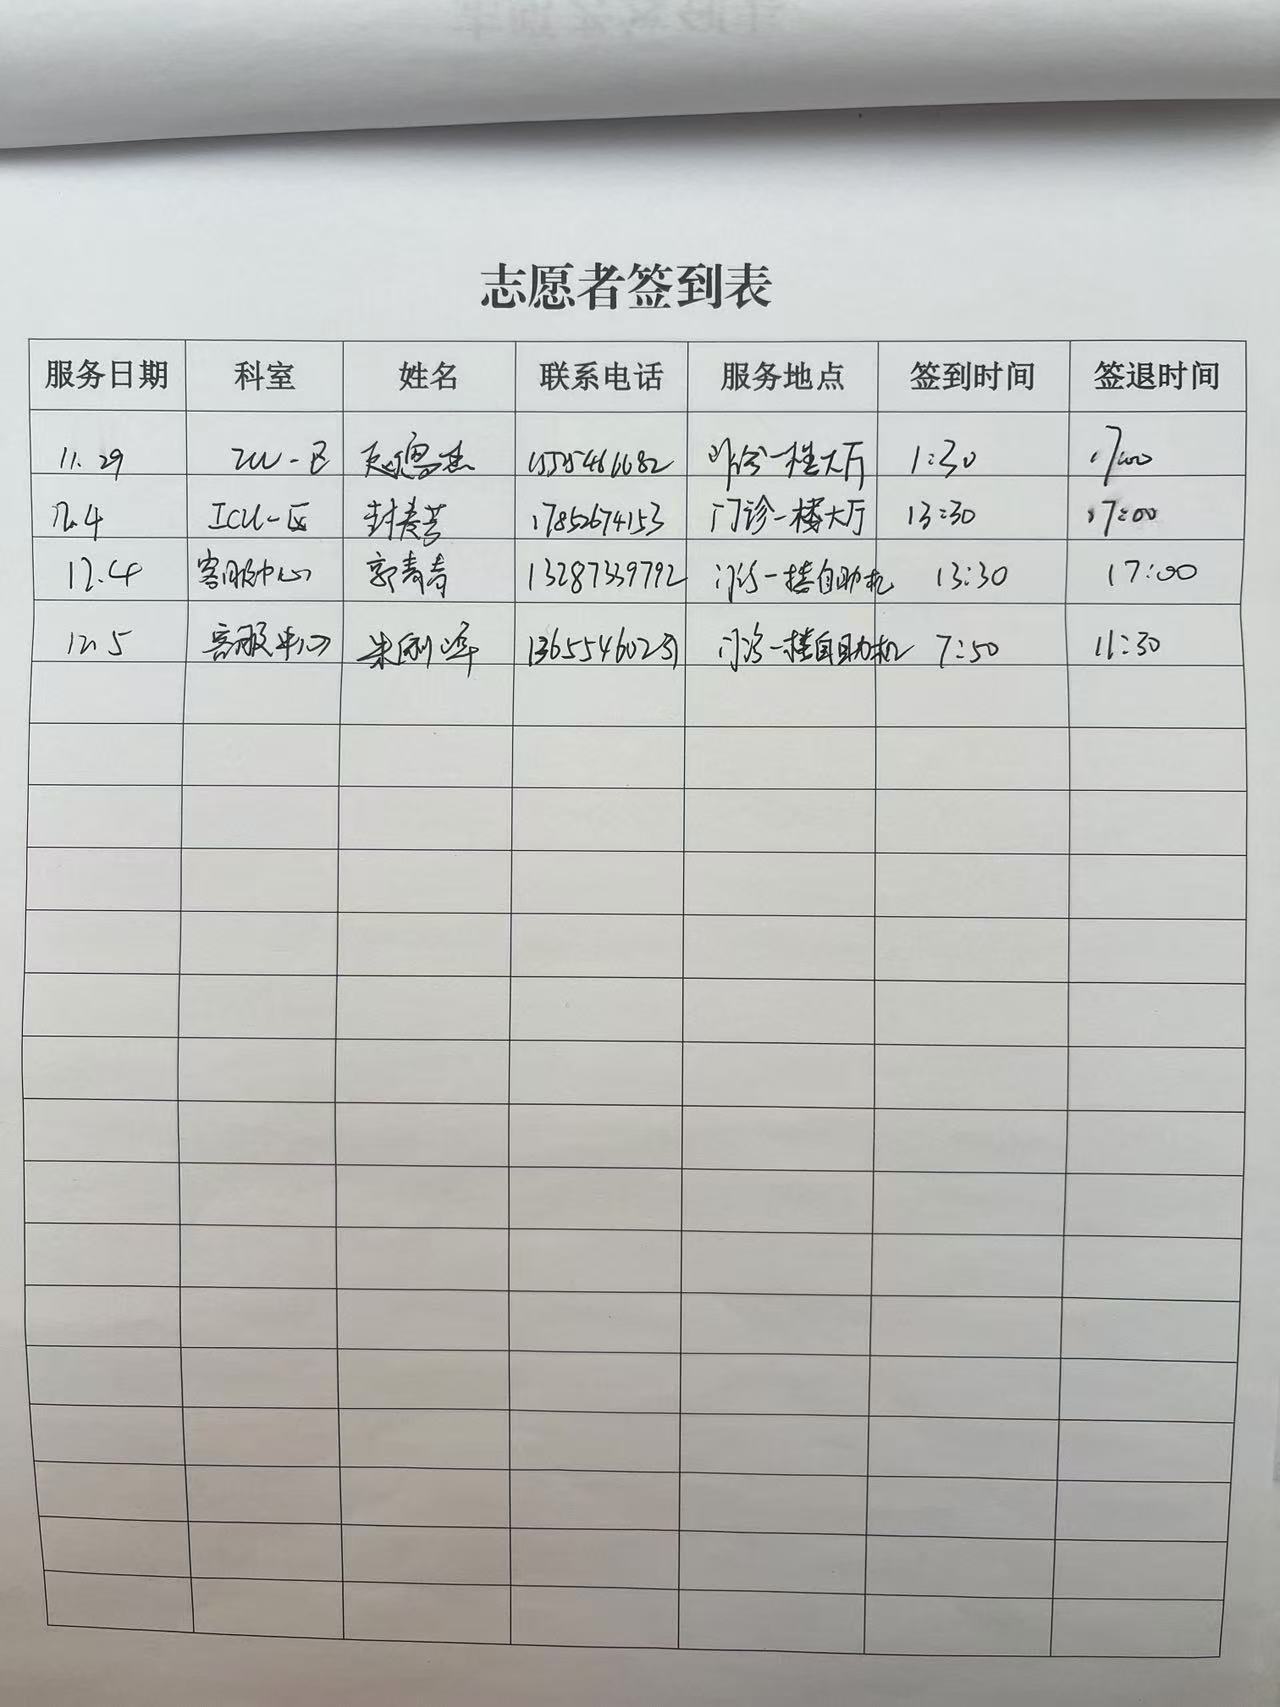 志愿者签到表
服务日期 科室 姓名 联系电话 服务地点 签到时间 签退时间
11.29 ICU一区 门诊一楼大厅 1:30 17:00
12.4 ICU一区 17852674153 门诊一楼大厅 13:30 17:00
12.4 客服中心 郭青青 13287339792 门诊一楼自助机 13:30 17:00
12.5 客服中心 门诊一楼自助机 7:50 11:30